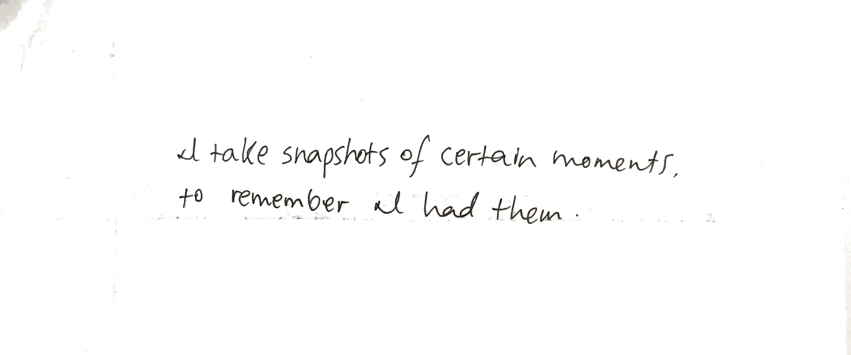 I take snapshots of certain moments,
to remember I had them.